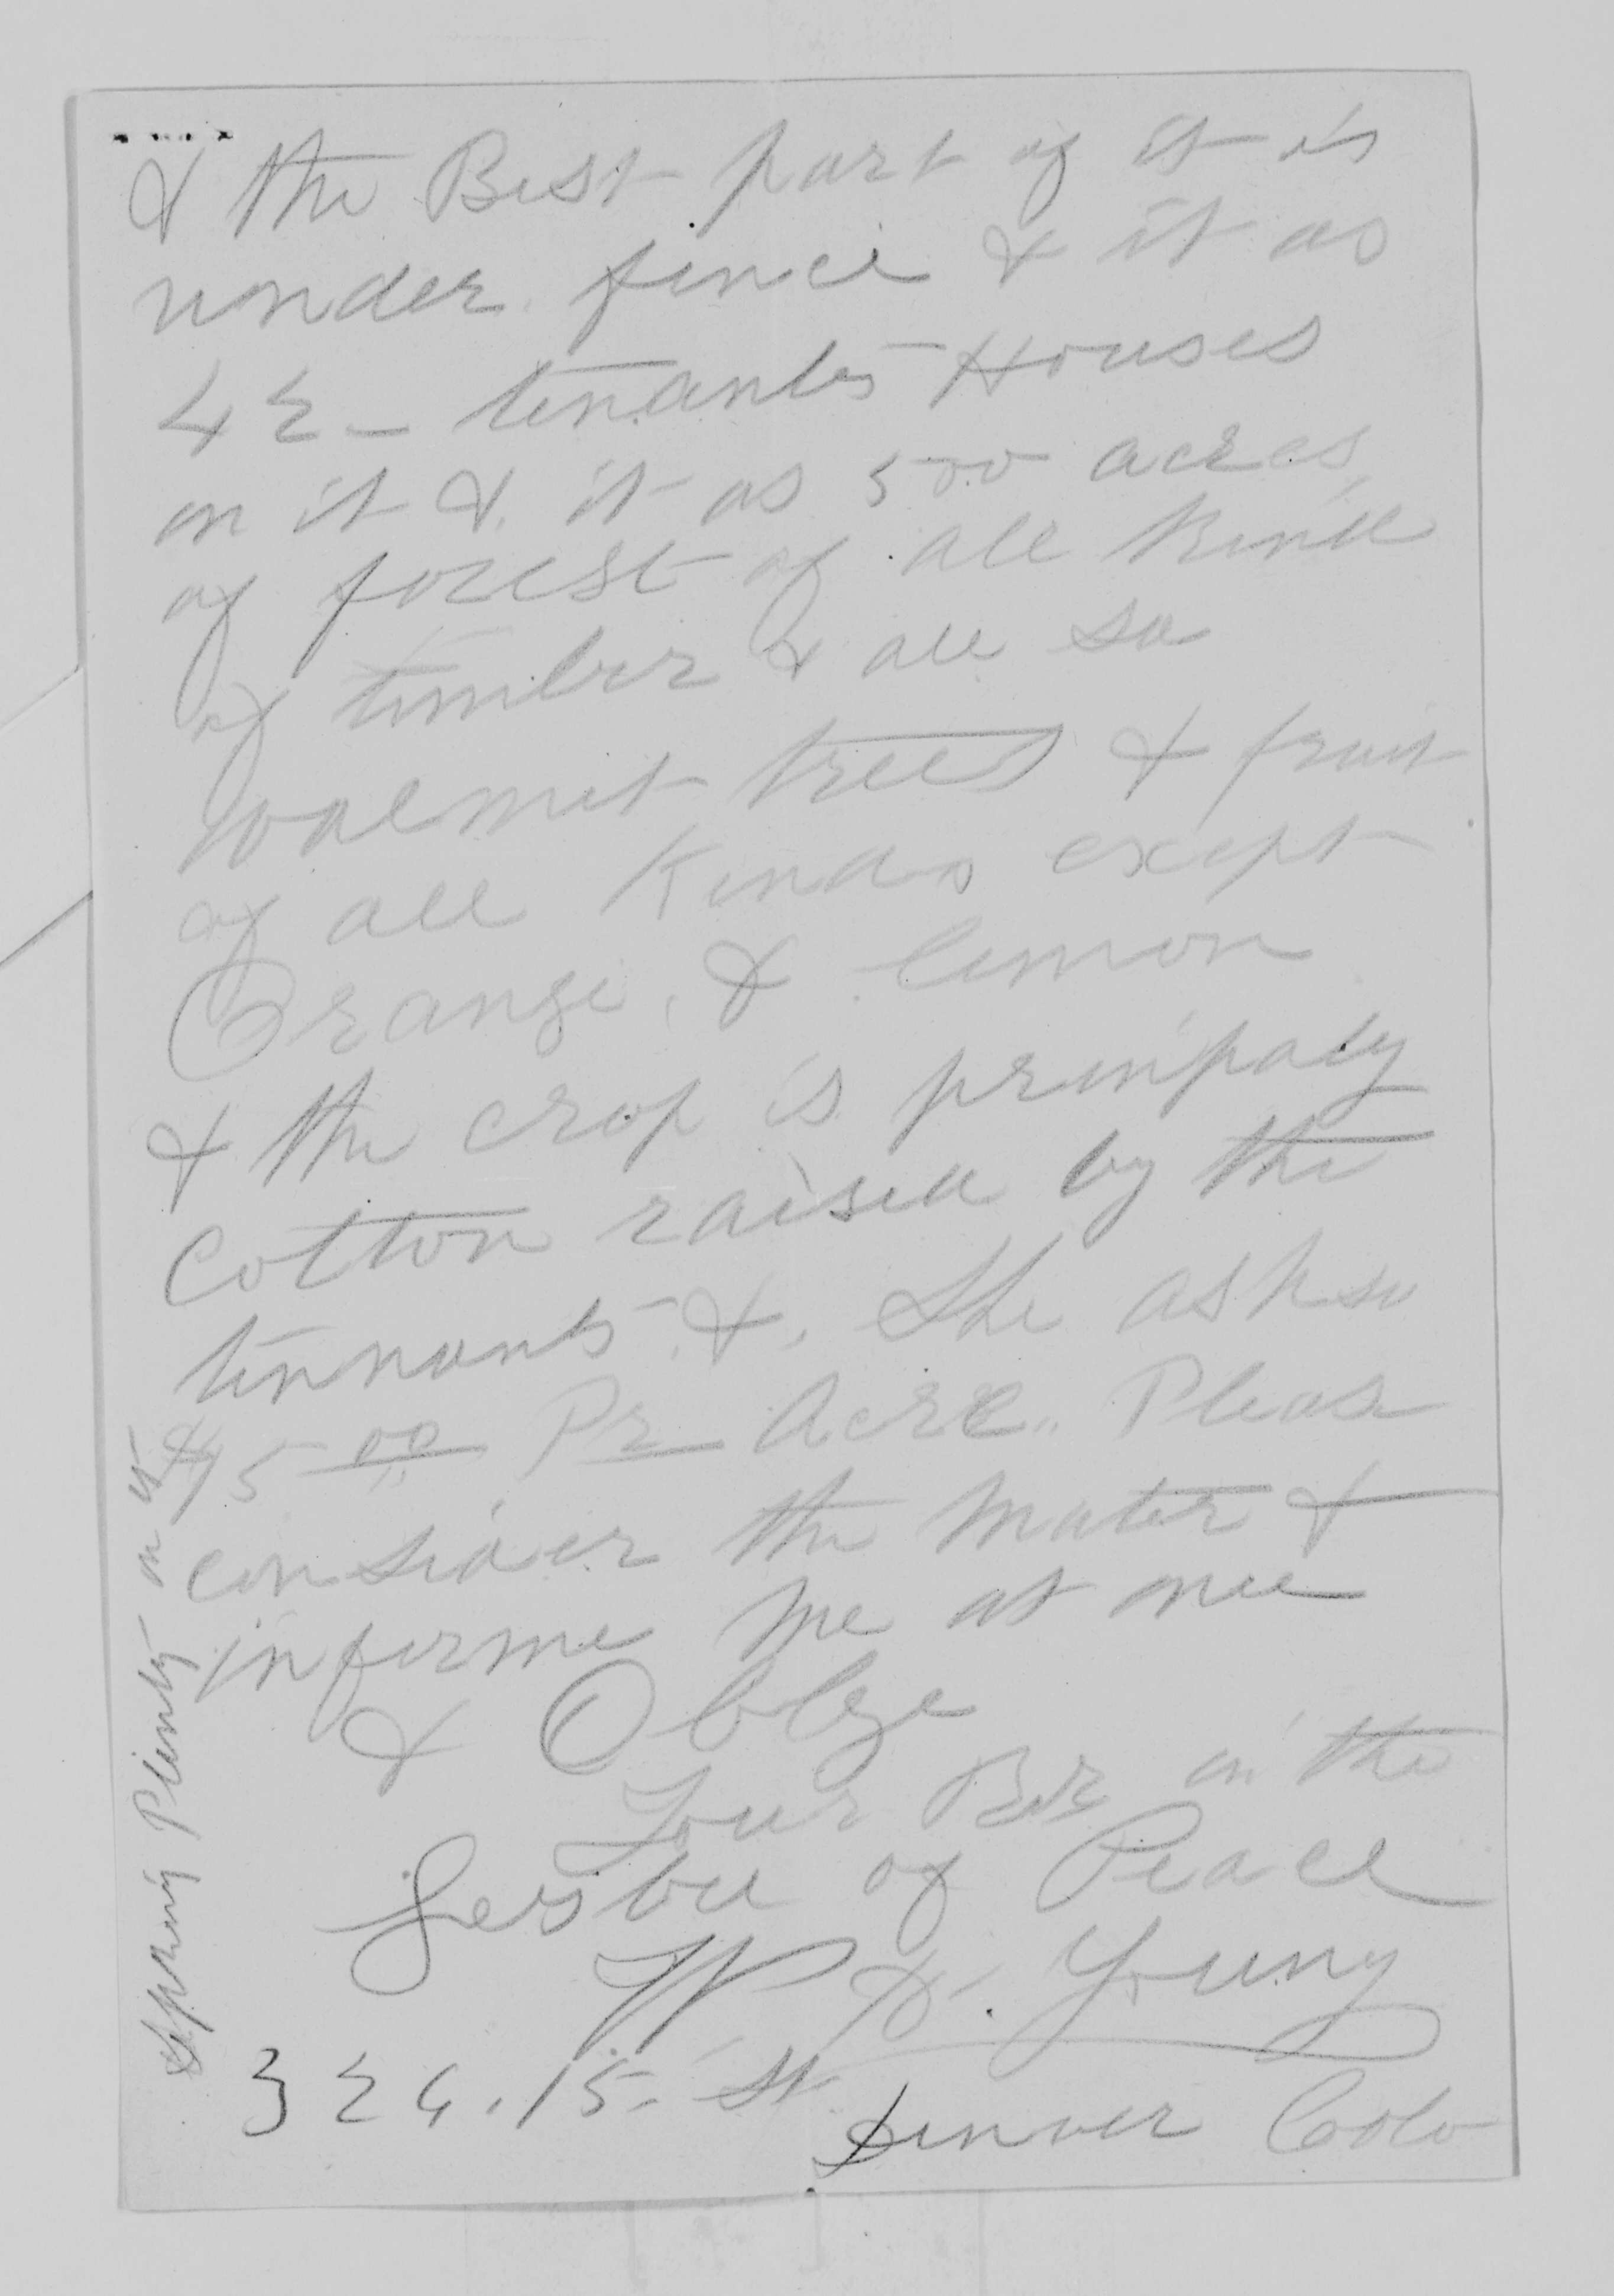 & the Best part of it is
under fence & it as
42 - tenants Houses
on it & it as 500 acres
of forest of all kind
of timber & all so
walnut trees & fruit
of all Kinds except
Orange, & lemon
& the crop is prinipaly
Cotton raised by the
tennants & She asks
$ 5 00 Pr Acre. Pleas
consider the Mater &
informe Me at once
& Oblge
Your Br in the
of Peace
W H. Young
324. 15. St
Denver Colo
Plenty on it